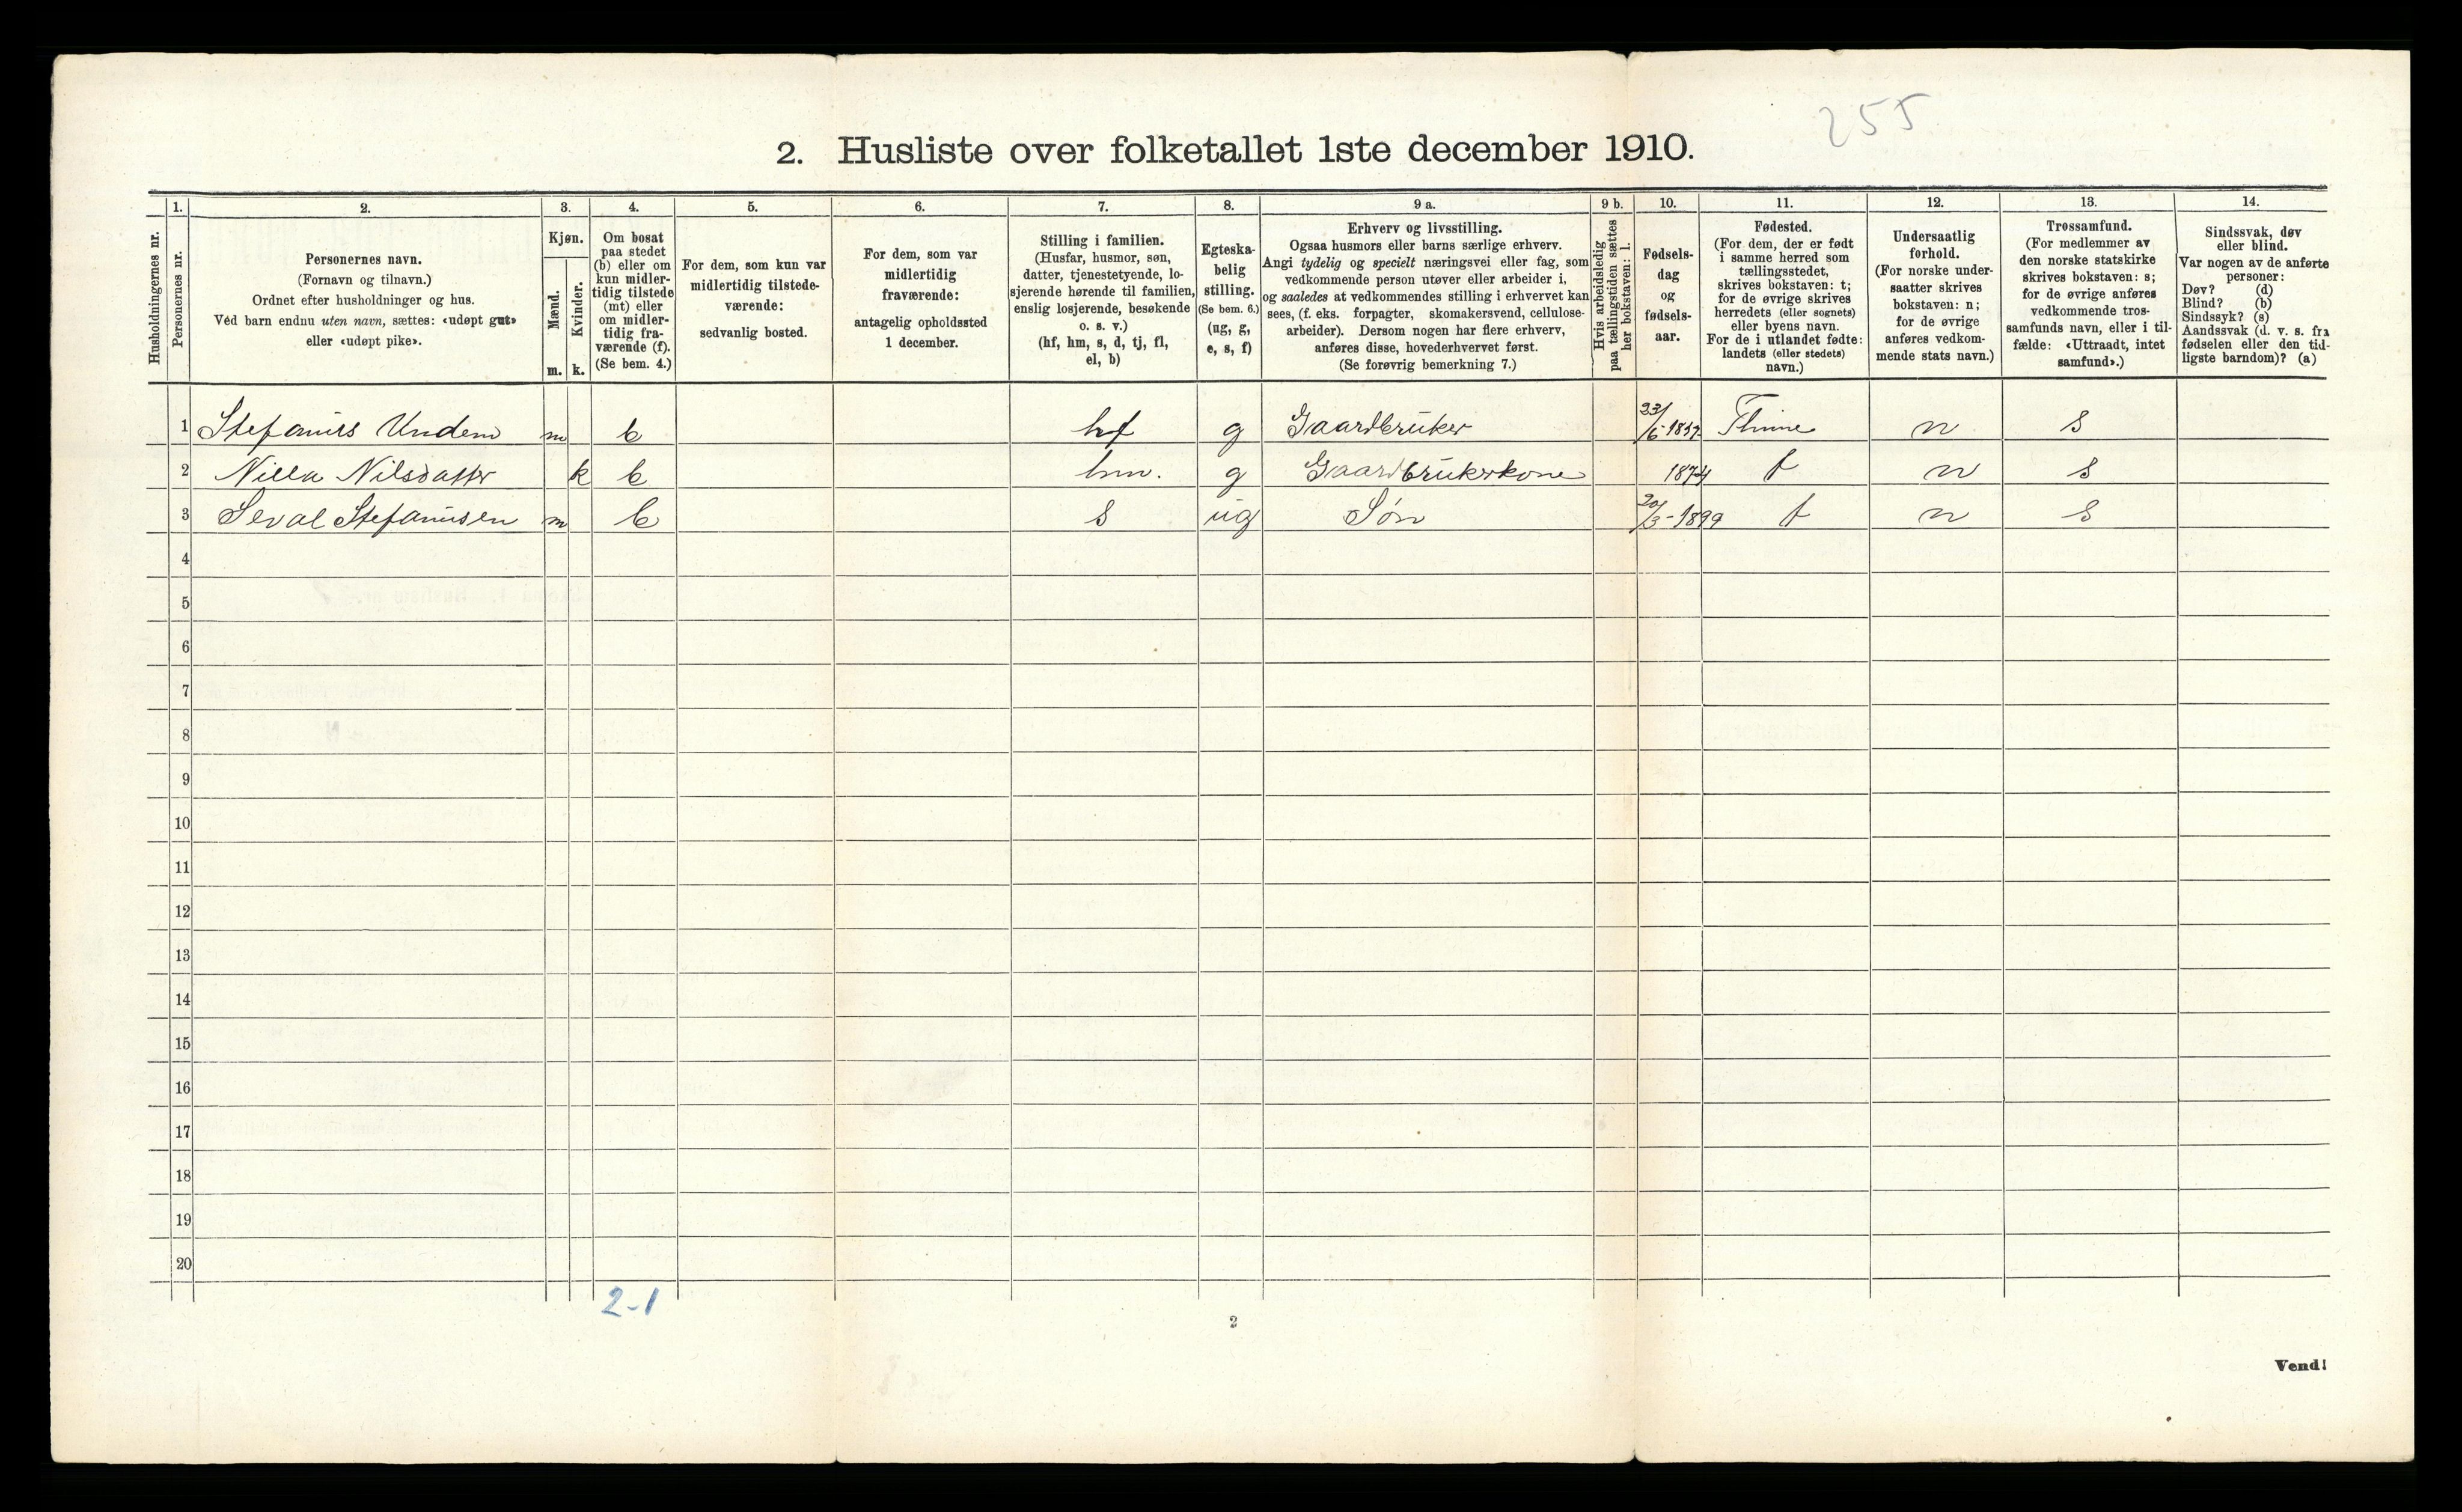 255
2. Husliste over folketallet 1ste december 1910.
Husholdningernes nr.
1. Personernes nr.
2. Personernes navn.
(Fornavn og tilnavn.)
Ordnet efter husholdninger og hus.
Ved barn endnu uten navn, sættes: «udøpt gut»
eller «udøpt pike».
3. Kjøn.
Mænd. m.
Kvinder. k.
4. Om bosat
paa stedet
(b) eller om
kun midler-
tidig tilstede
(mt) eller
om midler-
tidig fra-
værende (f).
(Se bem. 4.)
5. For dem, som kun var
midlertidig tilstede-
værende:
sedvanlig bosted.
6. For dem, som var
midlertidig
fraværende:
antagelig opholdssted
1 december.
7. Stilling i familien.
(Husfar, husmor, søn,
datter, tjenestetyende, lo-
sjerende hørende til familien,
enslig losjerende, besøkende
o. s. v.)
(hf, hm, s, d, tj, fl,
el, b)
8. Egteska-
belig
stilling.
(Se bem. 6.)
(ug, g,
e, s, f)
9 a. Erhverv og livsstilling.
Ogsaa husmors eller barns særlige erhverv.
Angi tydelig og specielt næringsvei eller fag, som
vedkommende person utøver eller arbeider i,
og saaledes at vedkommendes stilling i erhvervet kan
sees, (f. eks. forpagter, skomakersvend, cellulose-
arbeider). Dersom nogen har flere erhverv,
anføres disse, hovederhvervet først.
(Se forøvrig bemerkning 7.)
9 b. Hvis arbeidsledig
paa tællingstiden sættes
her bokstaven: l.
10. Fødsels-
dag
og
fødsels-
aar.
11. Fødested.
(For dem, der er født
i samme herred som
tællingsstedet,
skrives bokstaven: t;
for de øvrige skrives
herredets (eller sognets)
eller byens navn.
For de i utlandet fødte:
landets (eller stedets)
navn.)
12. Undersaatlig
forhold.
(For norske under-
saatter skrives
bokstaven: n;
for de øvrige
anføres vedkom-
mende stats navn.)
13. Trossamfund.
(For medlemmer av
den norske statskirke
skrives bokstaven: s;
for de øvrige anføres
vedkommende tros-
samfunds navn, eller i til-
fælde: «Uttraadt, intet
samfund».)
14. Sindssvak, døv
eller blind.
Var nogen av de anførte
personer:
Døv? (d)
Blind? (b)
Sindssyk? (s)
Aandssvak (d. v. s. fra
fødselen eller den tid-
ligste barndom)? (a)
1 Stefanus Undem m b hf g Gaardbruker n s
2 Nilla Nilsdatter k b hm. g Gaardbrukerkone 1874 t n s
3 Seval Stefanusen m b s ug Søn 20/3-1899 t n s
4
5
6
7
8
9
10
11
12
13
14
15
16
17
18
19
20
2-1
2
Vend!